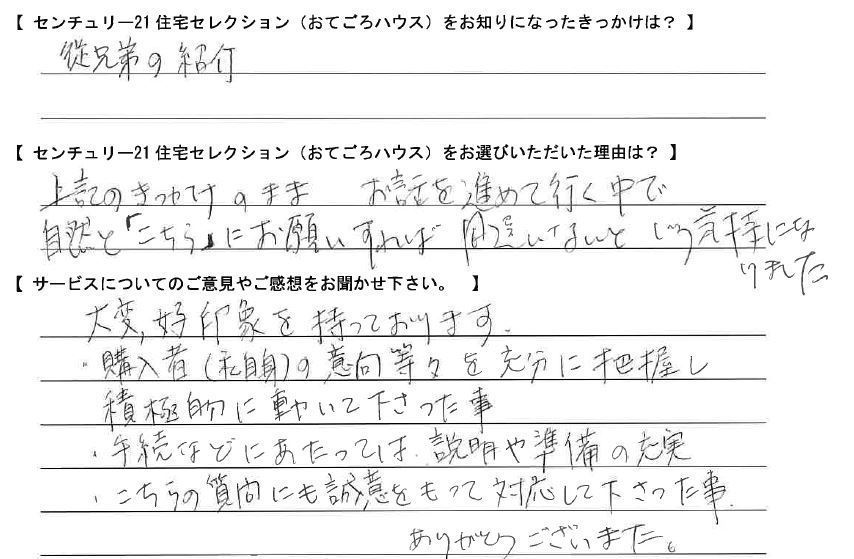 【 センチュリー21 住宅セレクション（おてごろハウス）をお知りになったきっかけは？ 】
従兄弟の紹介
【 センチュリー21 住宅セレクション（おてごろハウス）をお選びいただいた理由は？ 】
上記のきっかけのまま　お話を進めて行く中で
自然と「こちら」にお願いすれば 間違いないと いう気持にな
りました
【 サービスについてのご意見やご感想をお聞かせ下さい。 】
大変,好印象を持っております.
・購入者(私自身)の意向等々を充分に把握し
積極的に動いて下さった事
・手続などにあたっては.説明や準備の充実
・こちらの質問にも誠意をもって対応して下さった事.
ありがとうございました。